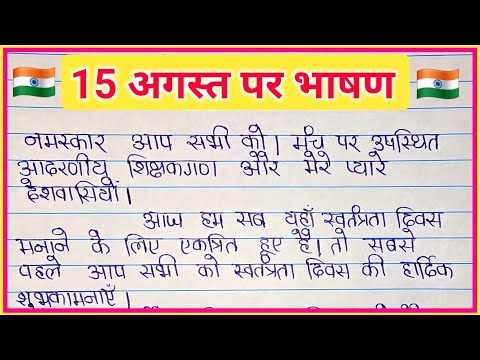 15 अगस्त पर भाषण
नमस्कार आप सभी को। मंच पर उपस्थित
आदरणीय शिक्षकगण और मेरे प्यारे
देशवासियों।
आज हम सब यहाँ स्वतंत्रता दिवस
मनाने के लिए एकत्रित हुए है। तो सबसे
पहले आप सभी को स्वतंत्रता दिवस की हार्दिक
शुभकामनाएँ।